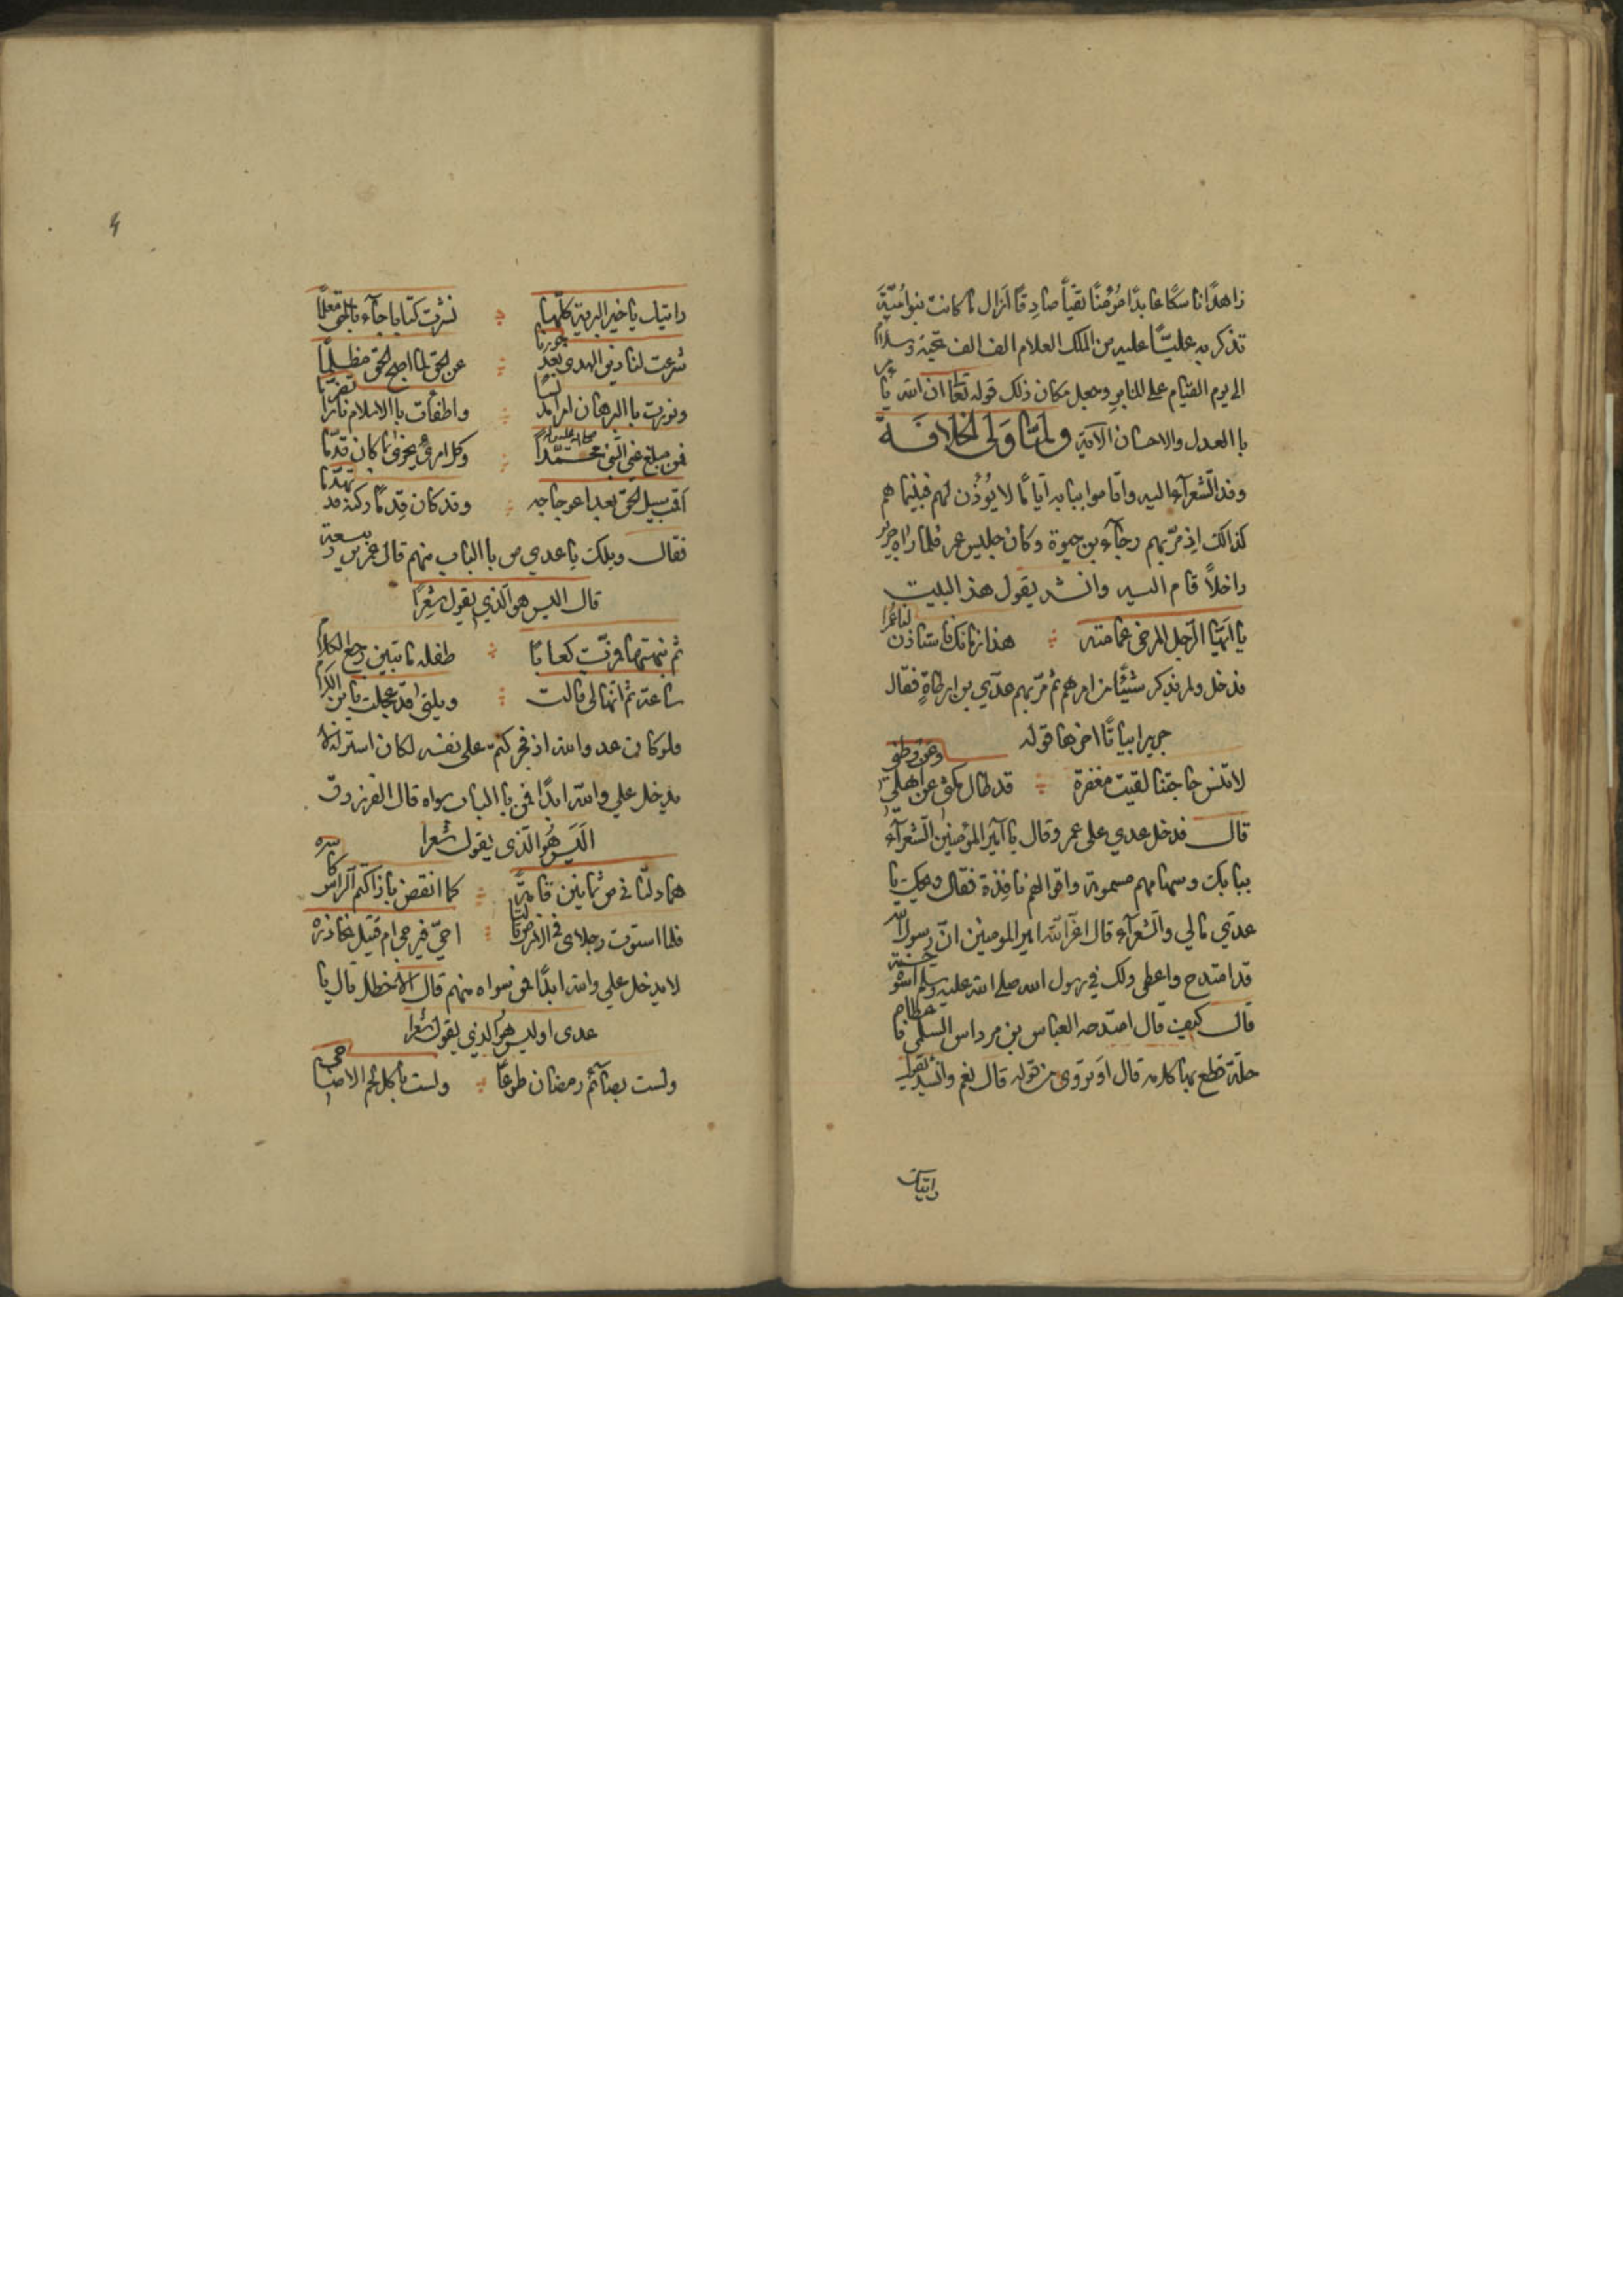 زاهدًا ناسكًا عابدًا مؤمنًا تقيًا صادقًا ازال ما كانت بنو اميّة
تذكر به عليًّا عليه من الملك العلام الف الف تحية وسلام
الى يوم القيام على المنابر وجعل مكان ذلك قوله تعا ان الله يأمر
باالعدل والاحسان الآية ولمّا ولى الخلافة
وفد الشعرآء اليه واقاموا ببابه ايامًا لا يؤذن لهم فبينما هم
كذالك اذ مرّ بهم رجآء بن حيوة وكان جليس عمر فلما راه جرير
داخلاً قام اليه وانشد يقول هذ البيت
يا ايها الرجل المرخى عمامته هذا زمانك فاستاذن لنا عمرا
فدخل ولم يذكر شيئًا من امرهم ثم مرّ بهم عدّي بن ارطاةٍ فقال
جرير ابياتًا اخرها قوله
لا تنس حاجتنا لقيت مغفرة قد طال مكثى عن اهلي وعن وطنى
قال فدخل عدي على عمر وقال يا آمير المؤمنين الشعرآء
ببابك وسهامهم مسمومة واقوالهم نافذة فقال ويحك يا
عدّي مالي والشعرآء قال اعزّ الله امير المومنين انّ رسول الله
قد امتدح واعطى ولك في رسول الله صلى الله عليه وسلم اسوة حسنة
قال كيف قال امتدحه العباس بن مرداس السلمى فاعطاه
حلة قطع بها كلامه قال اوتروى من قوله قال نعم وانشد يقول
راتيك
راتيك يا خير البرية كلّها نشرت كتابا جآء باالحق معلمًا
شرعت لنا دين الهدى بعد جورنا عن الحق لما اصبح الحق مظلمًا
ونورت باالبرهان امرا مد لسًا واطفأت باالاسلام نارًا تضرّما
فمن مبلغ عني النبى محمّدًا وكل امرئ يجزى بما كان قدّما
اقمت سبيل الحق بعد اعوجاجه وقد كان قدمًا ركنه قد تهدّما
فقال ويلك يا عدي من باالباب منهم قال عمر بن ربيعة
قال اليس هو الذي يقول شعرًا
ثم نبهتها فمزّت كعابًا طفله ما تبين رجع الكلام
ساعة ثم انها لى قالت ويلتى قد عجلت يا بن الكرام
فلو كان عدو الله اذ فجر كتم على نفسه لكان استر له لا
يدخل علي والله ابدًا فمن باالباب سواه قال الفرزدق
اليس هو الذي يقول شعرا
هما دلّتا نى من ثمانين قامة كما انقض باز اكتم الراس كاسره
فلما استوت رجلاى في الارض قالتا احيّ فيرجى ام قتيل نحاذره
لا يدخل علي والله ابدًا فمن سواه منهم قال الاخطل قال يا
عدى اوليس هو الذي يقول شعرا
ولست بصآئم رمضان طوعًا ولست بآكل لحم الاضاحى